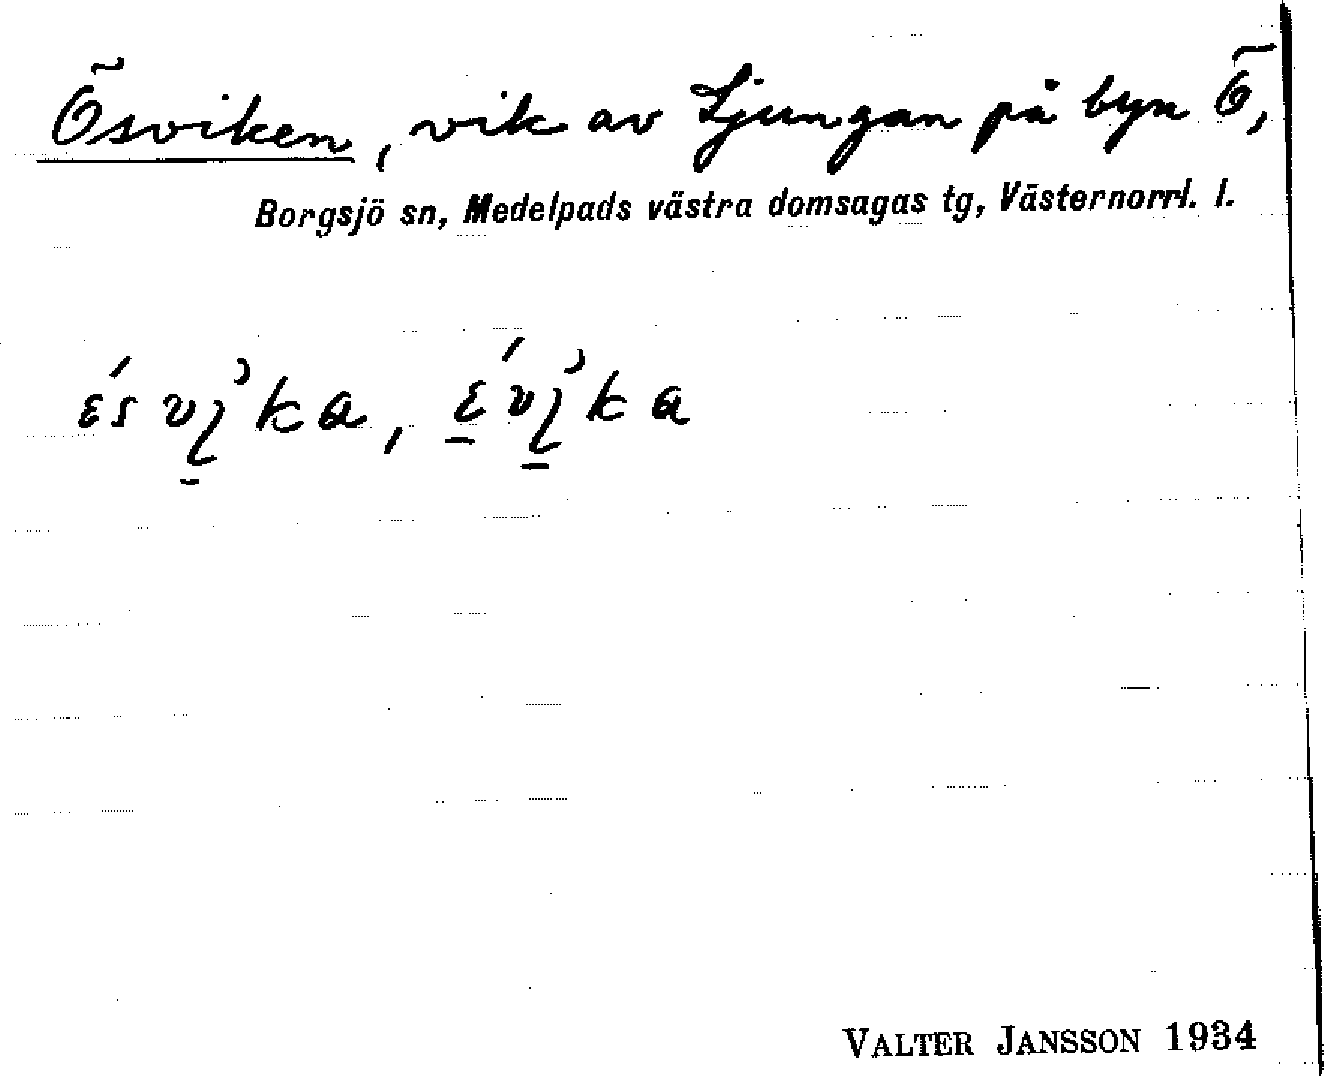 Ösviken, vik av Ljungan på byn Ö,
Borgsjö sn, Medelpads västra domsagas tg, Västernorrl. l.
VALTER JANSSON 1934